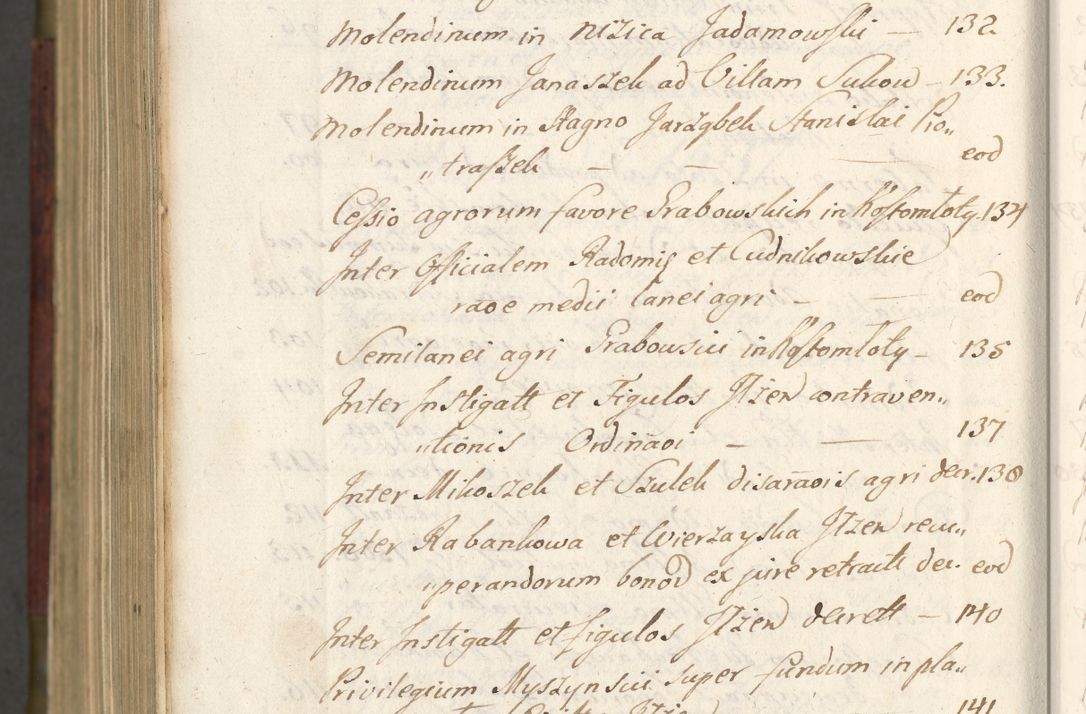 Molendinum in Nizica Jadamowski — 132.
Molendinum Janaszek ad Villam Sukow — 133.
Molendinum in Stagno Jarząbek Stanislai Pio„
„traszek — — — eod
Cessio agrorum favore Grabowskich in Kostomłoty. 134
Inter Officialem Radomis et Cudnikowskie
raõe medii lanei agri — — eod
Semilanei agri Grabowscii in Kostomłoty — 135
Inter Instigatt et Figulos Ilzen contraven„
„utionis Ordinãoi — — 137
Inter Mikoszek et Szulek disarãois agri decr. 138
Inter Rabankowa et Wierzayska Ilzen recu„
„perandorum bonor ex jure retractt dec. eod
Inter Instigatt et figulos Ilzen decrett — 140
Privilegium Myszynscii super fundum in pla„
141